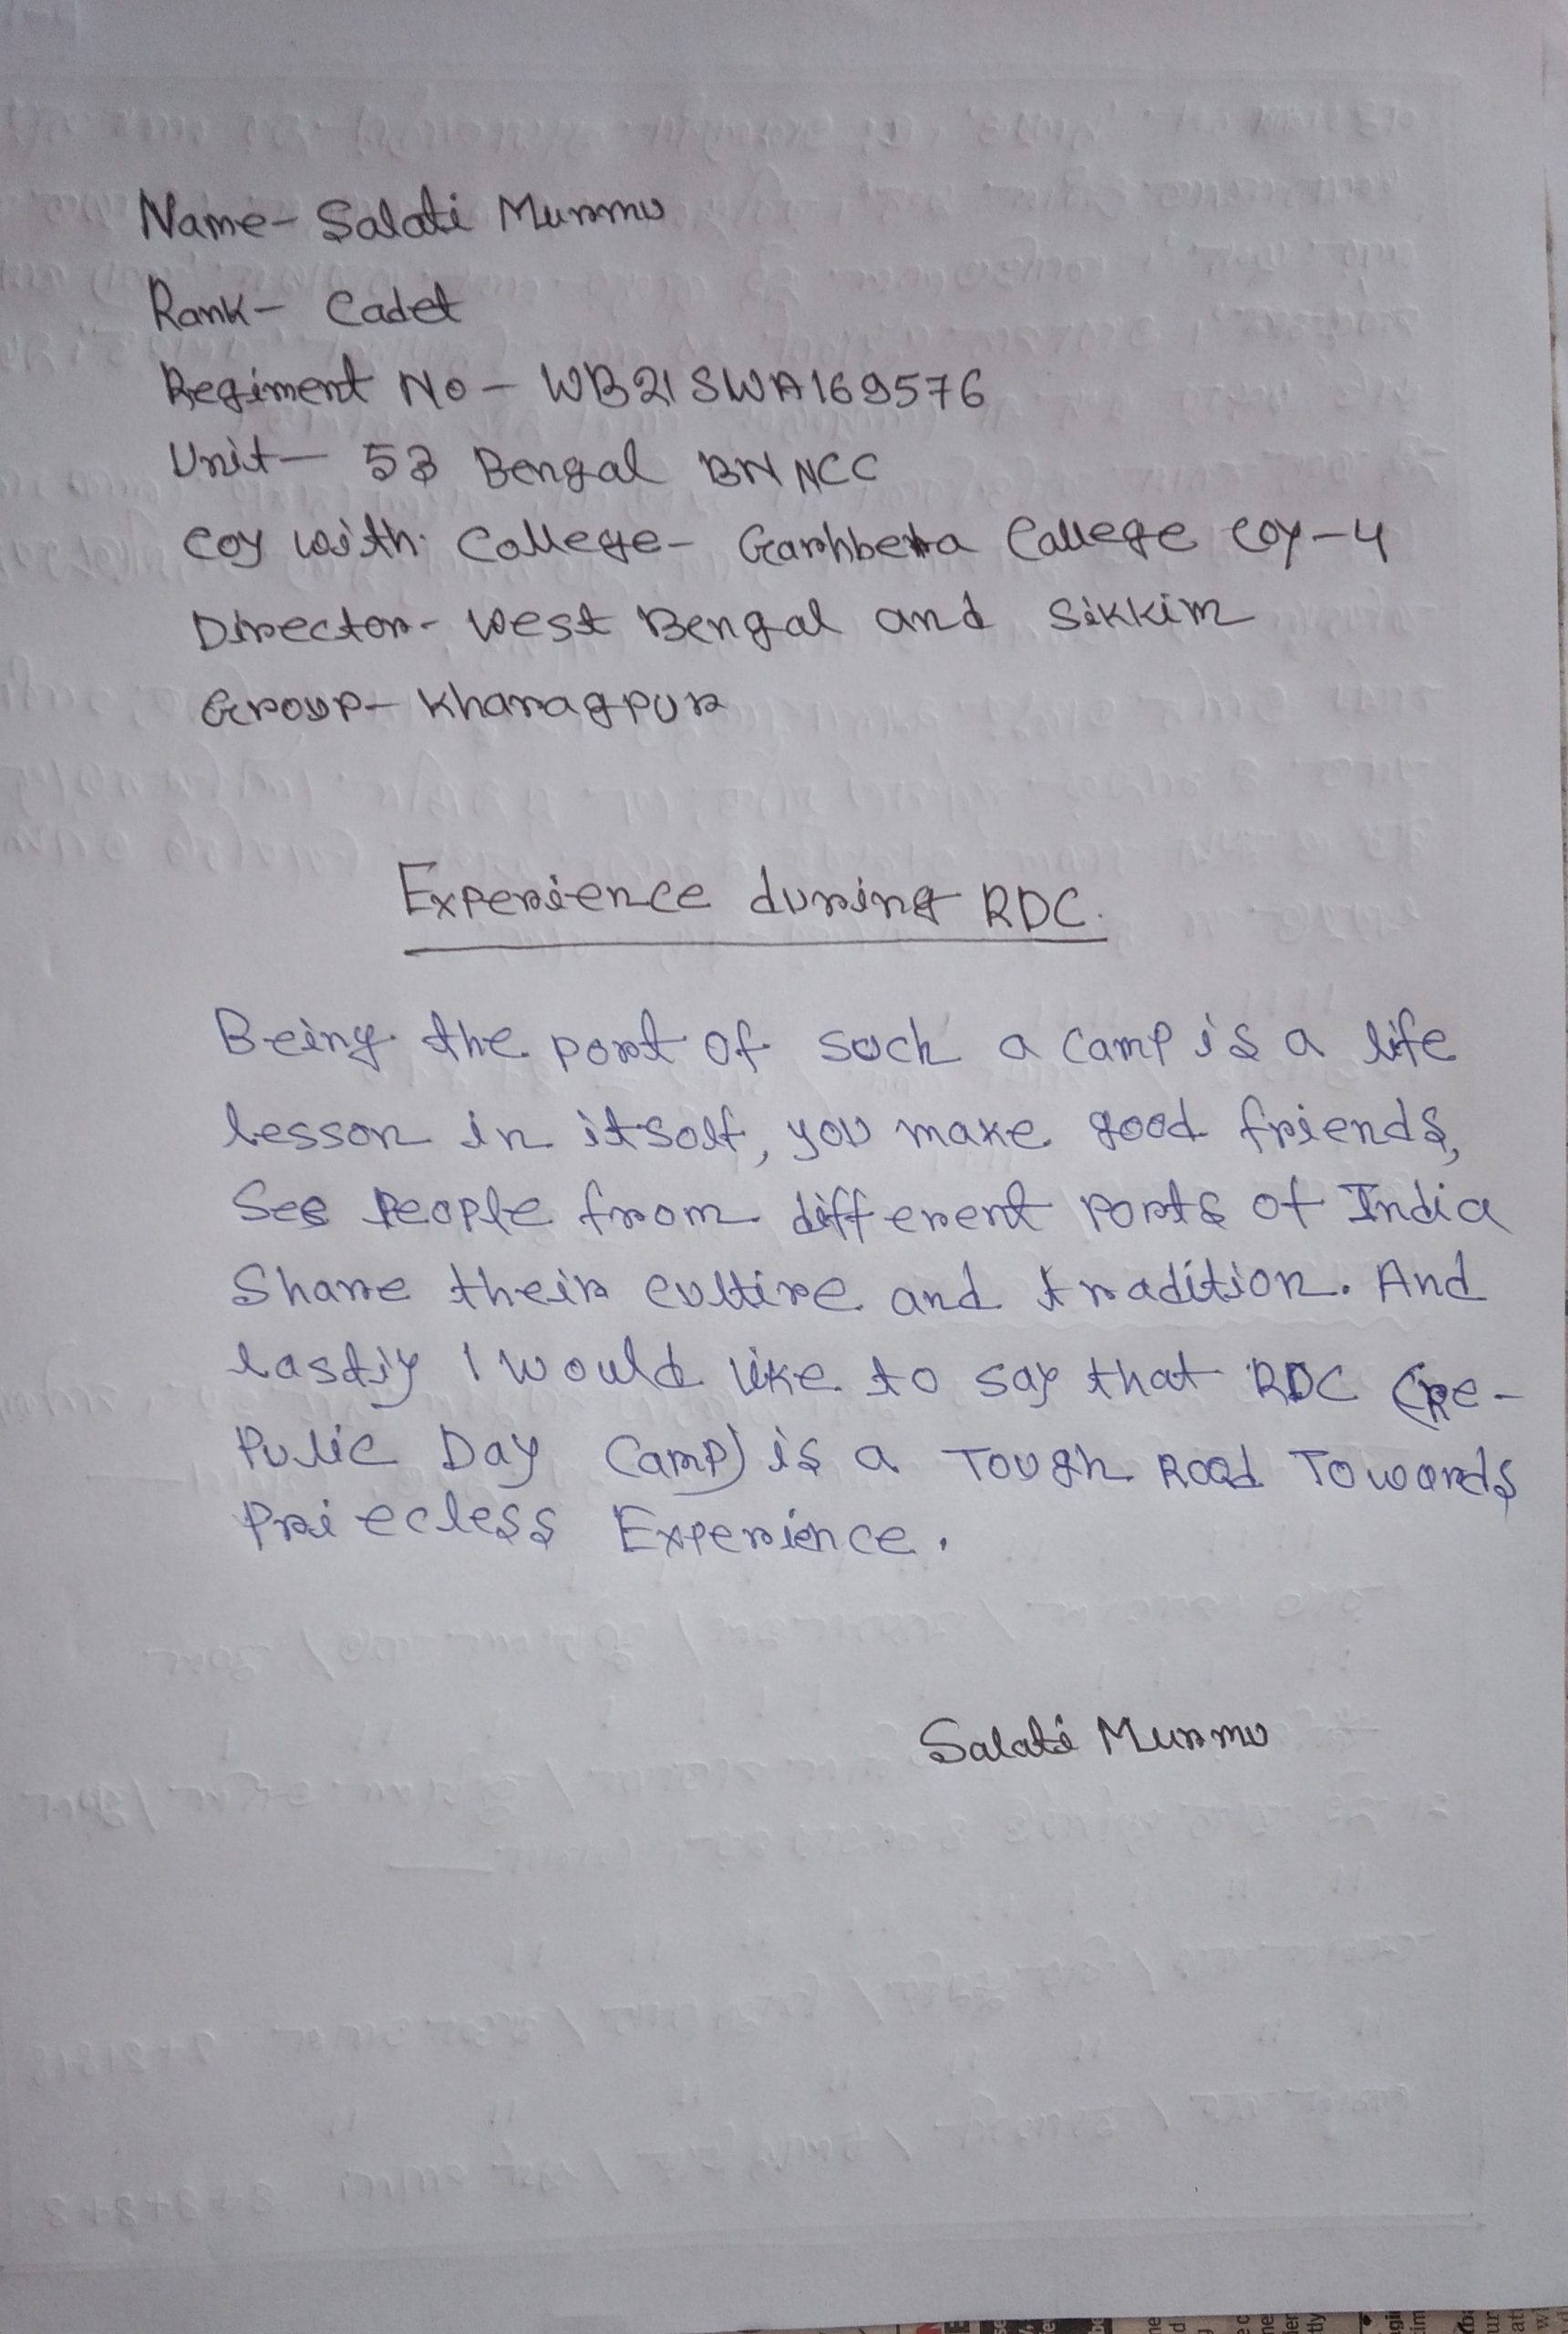 Name- Salati Murmu
Rank- Cadet
Regiment No - WB21SWA169576
Unit- 53 Bengal BN NCC
Coy with College- Garhbeta College Coy-4
Director- West Bengal and Sikkim
Group- Kharagpur
Experience during RDC.
Being the part of such a camp is a life
lesson in itself, you make good friends,
See People from different Parts of India
Share their cultire and tradition. And
lastiy I would like to say that RDC (Re-
Pulic Day Camp) is a Tough Road Towards
Priecless Experience.
Salati Murmu